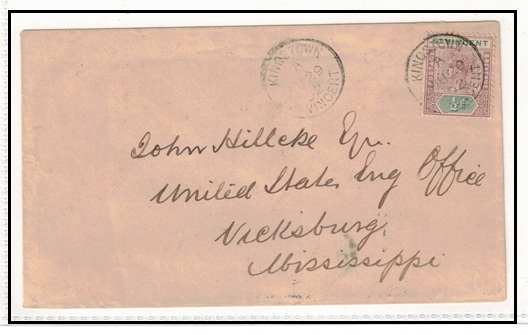 KINGSTOWN
ST VINCENT
KINGSTOWN
VINCENT
½d
John Hillcke Esqr.
United States Eng Office
Vicksburg,
Mississippi